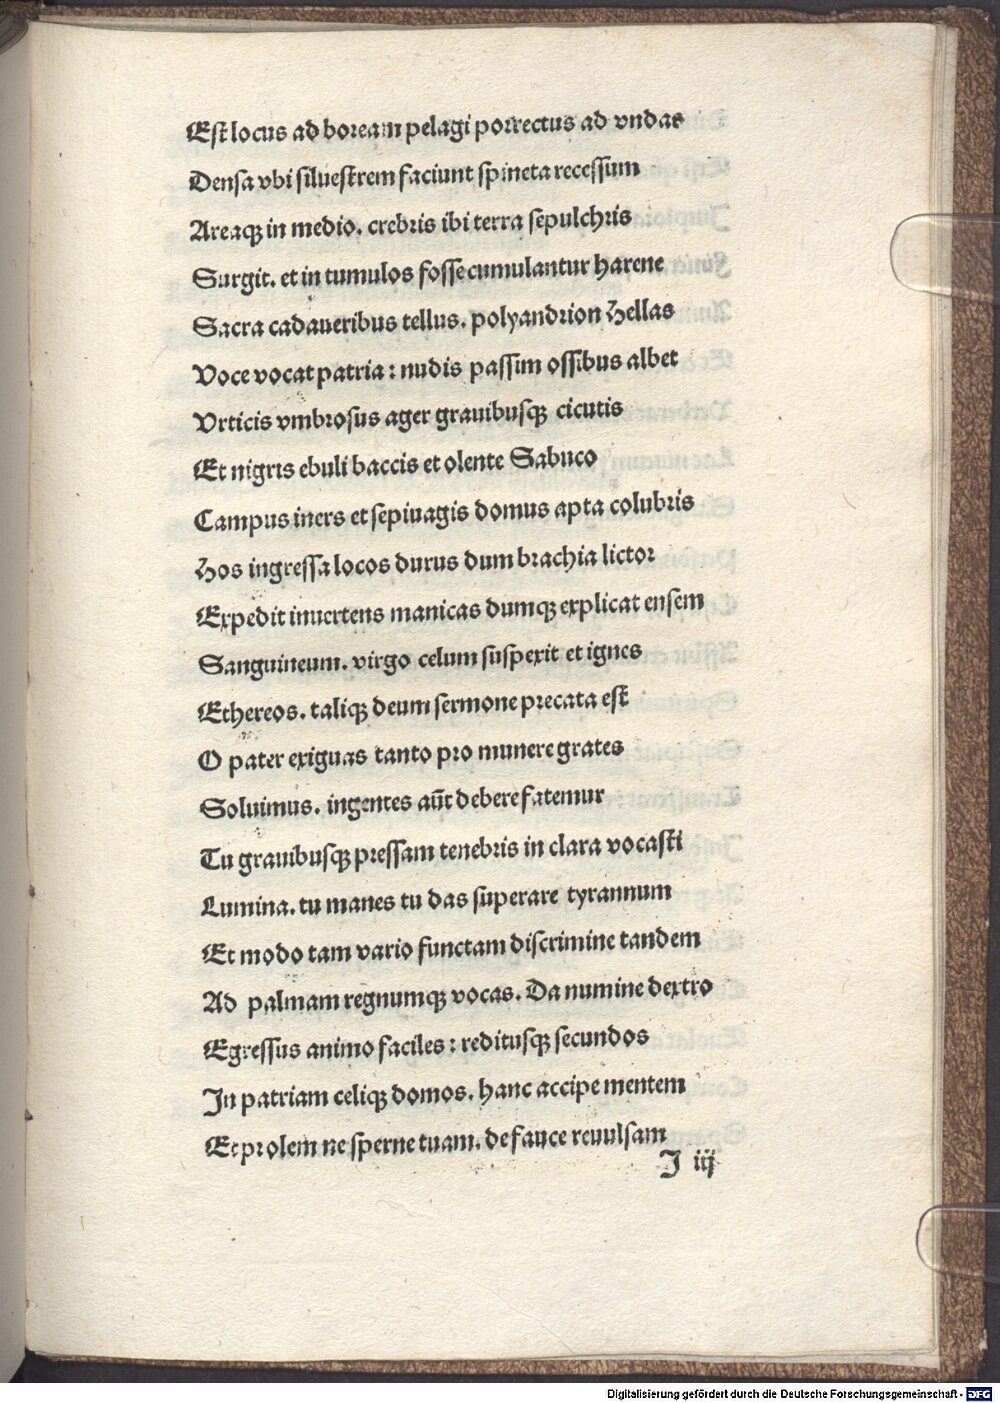 Est locus ad boream pelagi porrectus ad vndas
Densa vbi siluestrem faciunt spineta recessum
Areaqꝫ in medio. crebris ibi terra sepulchris
Surgit. et in tumulos fosse cumulantur harene
Sacra cadaueribus tellus. polyandrion Hellas
Voce vocat patria : nudis passim ossibus albet
Vrticis vmbrosus ager grauibusqꝫ cicutis
Et nigris ebuli baccis et olente Sabuco
Campus iners et sepiuagis domus apta colubris
Hos ingressa locos durus dum brachia lictor
Expedit inuertens manicas dumqꝫ explicat ensem
Sanguineum. virgo celum suspexit et ignes
Ethereos. taliqꝫ deum sermone precata est
O pater exiguas tanto pro munere grates
Soluimus. ingentes aūt debere fatemur
Tu grauibusqꝫ pressam tenebris in clara vocasti
Lumina. tu manes tu das superare tyrannum
Et modo tam vario functam discrimine tandem
Ad palmam regnumqꝫ vocas. Da numine dextro
Egressus animo faciles : reditusqꝫ secundos
In patriam celiqꝫ domos. hanc accipe mentem
Et prolem ne sperne tuam. de fauce reuulsam
I iij
Digitalisierung gefördert durch die Deutsche Forschungsgemeinschaft - DFG